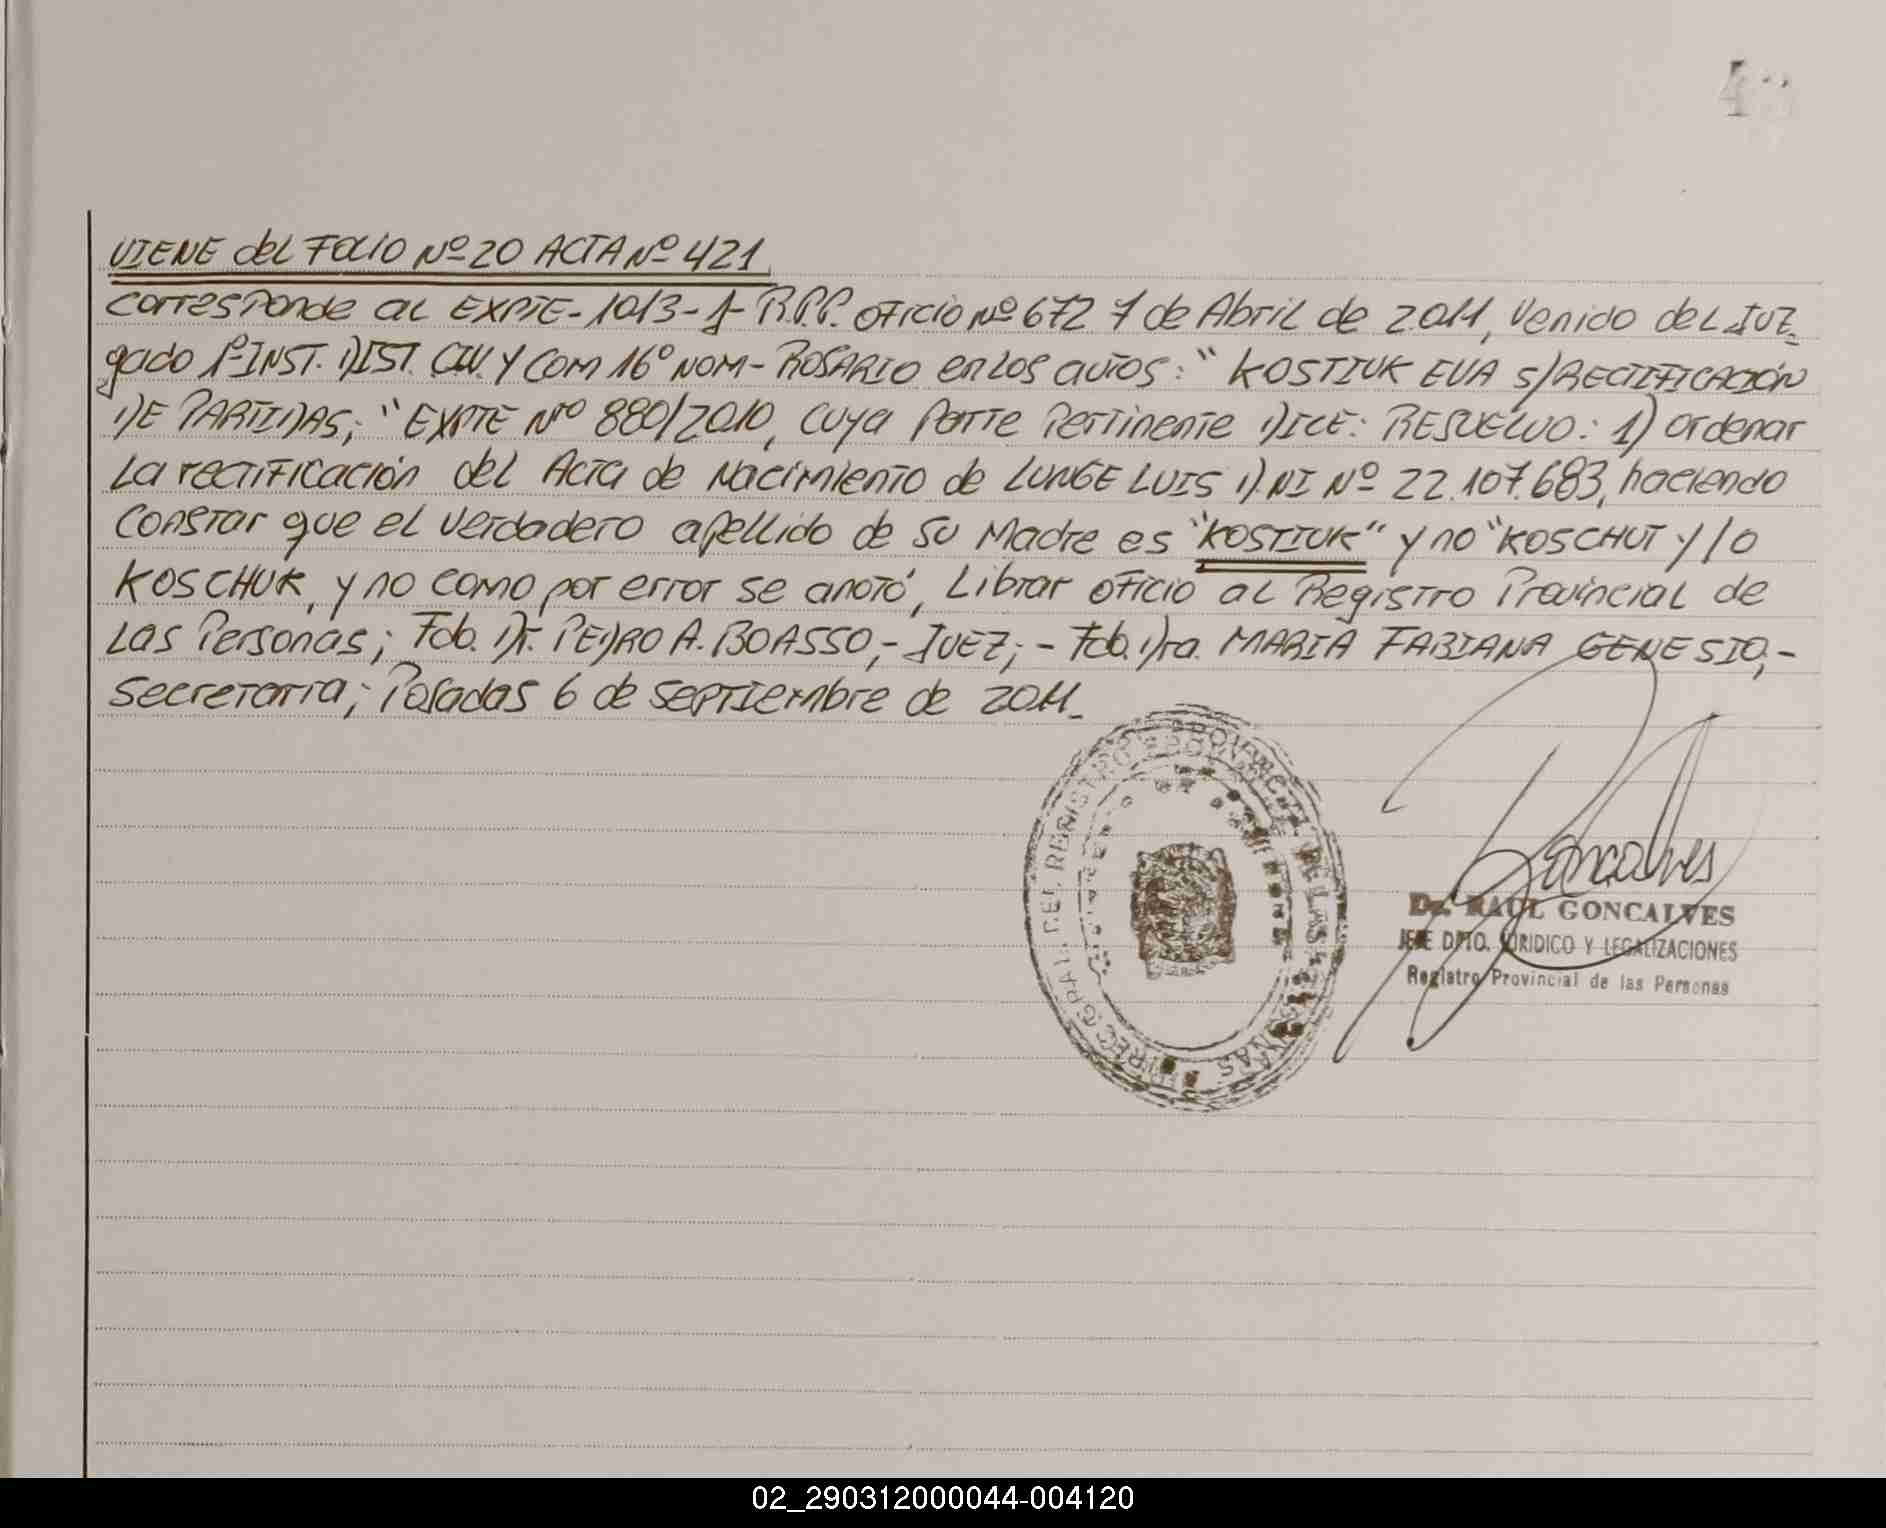 VIENE del FOLIO Nº 20 ACTA Nº 421
Corresponde al EXPTE-1013-J-R.P.P. OFICIO Nº 672 7 de Abril de 2011, Venido del JUZ-
gado 1º INST. DIST. CIV. Y COM 16º NOM - ROSARIO en los autos: "KOSTIUK EVA S/RECTIFICACIÓN
DE PARTIDAS; "EXPTE Nº 880/2010, cuya Parte Pertinente DICE: RESUELVO: 1) ordenar
La rectificación del Acta de Nacimiento de LUNGE LUIS D.NI Nº 22.107.683, haciendo
Constar que el verdadero apellido de su Madre es "KOSTIUK" y no "KOSCHUT y/o
KOSCHUK, y no como por error se anotó, Librar oficio al Registro Provincial de
Las Personas; Fdo. Dr. PEDRO A. BOASSO,- JUEZ;- Fdo. Dra. MARIA FABIANA GENESIO,-
Secretaria; Posadas 6 de Septiembre de 2011.
DIREC. GRAL. DEL REGISTRO PROVINCIAL DE LAS PERSONAS
Goncalves
Dr. RAUL GONCALVES
JEFE DPTO. JURIDICO Y LEGALIZACIONES
Registro Provincial de las Personas
02_290312000044-004120